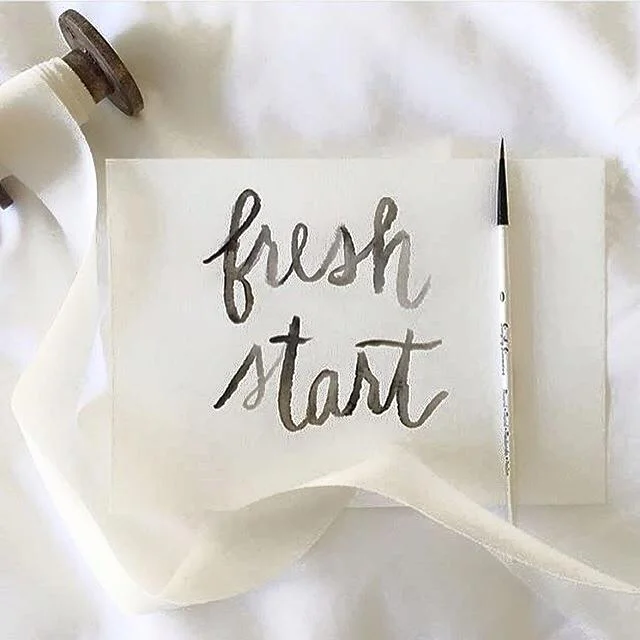 fresh
start